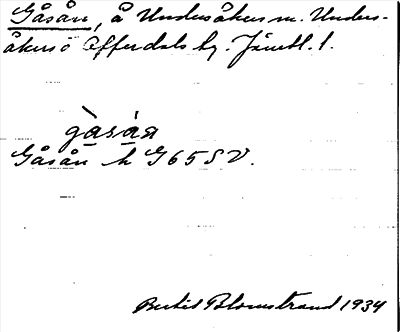 Gåsån, å Undersåkers sn. Unders-
åkers o Offerdals tg. Jämtl. l.
gà̱sá̱n
Gåsån k G65SV.
Bertil Blomstrand 1934